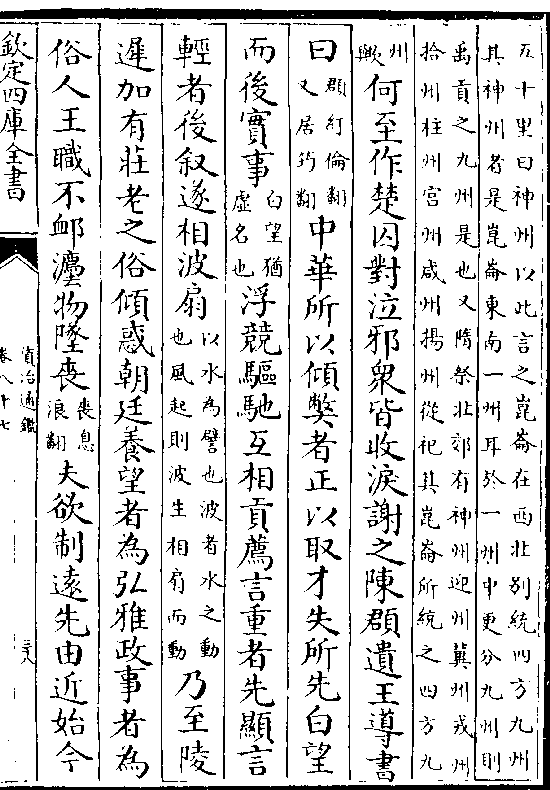 五十里曰神州以此言之崑崙在西北别統四方九州
其神州者是崑崙東南一州耳於一州中更分九州則
禹貢之九州是也又隋祭北郊有神州迎州冀州戎州
拾州柱州宫州咸州揚州從祀其崑崙所統之四方九
州歟何至作楚囚對泣邪衆皆收淚謝之陳頵遺王導書
曰頵紆倫翻又居筠翻中華所以傾弊者正以取才失所先白望
而後實事白望猶虛名也浮競驅馳互相貢薦言重者先顯言
輕者後叙遂相波扇以水為譬也波者水之動也風起則波生相扇而動乃至陵
遲加有莊老之俗傾惑朝廷養望者為弘雅政事者為
俗人王職不卹灋物墜喪喪息浪翻夫欲制遠先由近始今
欽定四庫全書
資治通鑑
卷八十七